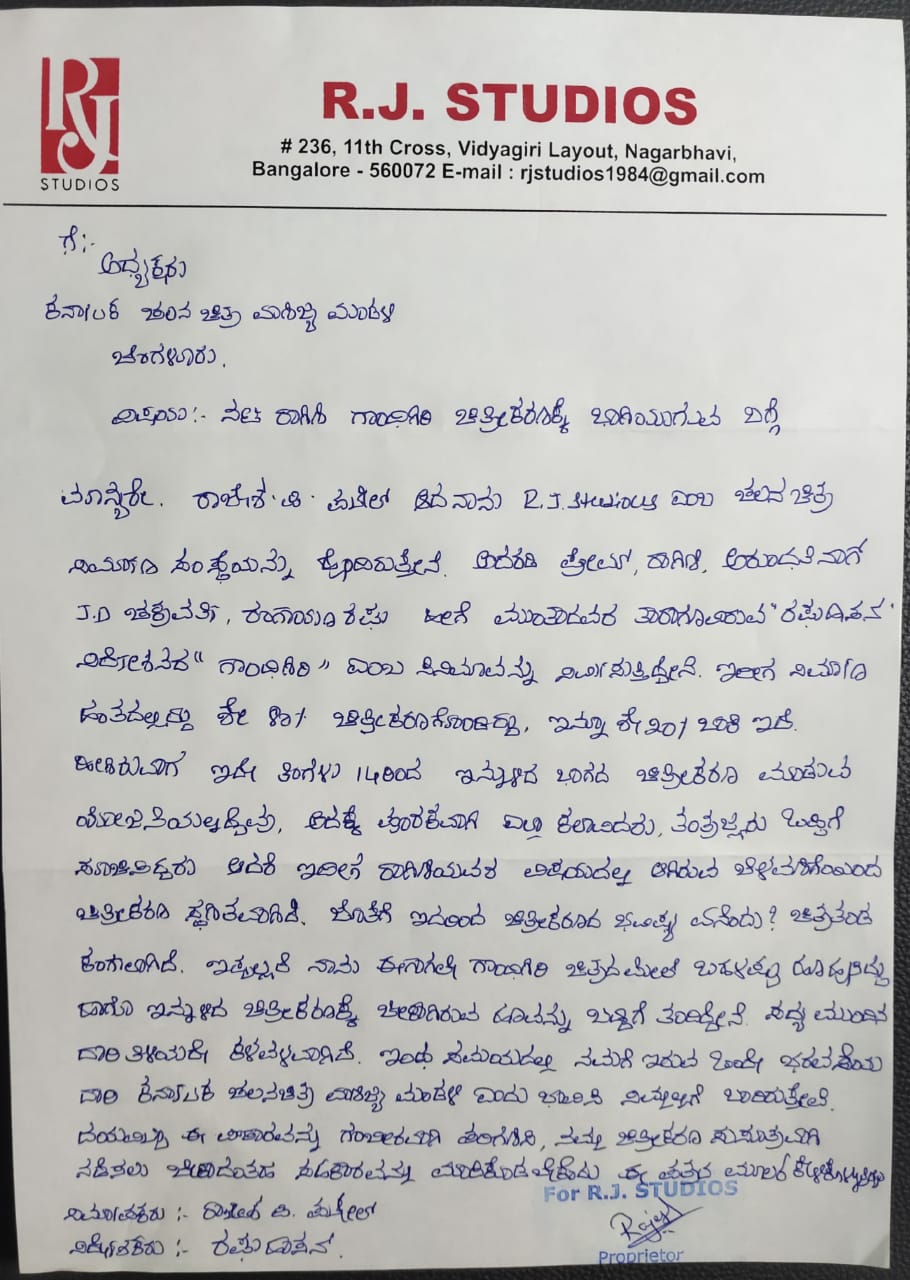 RJ
STUDIOS
R.J. STUDIOS
# 236, 11th Cross, Vidyagiri Layout, Nagarbhavi,
Bangalore - 560072 E-mail : rjstudios1984@gmail.com
ಗೆ:-
ಅಧ್ಯಕ್ಷರು
ಕರ್ನಾಟಕ ಚಲನ ಚಿತ್ರ ವಾಣಿಜ್ಯ ಮಂಡಳಿ
ಬೆಂಗಳೂರು.
ವಿಷಯ:- ನಟಿ ರಾಗಿಣಿ ಗಾಂಧಿಗಿರಿ ಚಿತ್ರೀಕರಣಕ್ಕೆ ಭಾಗಿಯಾಗುವ ಬಗ್ಗೆ
ಮಾನ್ಯರೇ. ರಾಜೇಶ್.ವಿ. ಪಟೇಲ್ ಆದ ನಾನು R.J. Studios ಎಂಬ ಚಲನ ಚಿತ್ರ
ನಿರ್ಮಾಣ ಸಂಸ್ಥೆಯನ್ನು ಹೊಂದಿರುತ್ತೇನೆ. ಅದರಡಿ ಪ್ರೇಮ್, ರಾಗಿಣಿ, ಅರುಂಧತಿನಾಗ್
J.D ಚಕ್ರವರ್ತಿ, ರಂಗಾಯಣ ರಘು ಹೀಗೆ ಮುಂತಾದವರ ತಾರಾಗಣವಿರುವ "ರಘುಹಾಸನ"
ನಿರ್ದೇಶನದ "ಗಾಂಧಿಗಿರಿ" ಎಂಬ ಸಿನಿಮಾವನ್ನು ನಿರ್ಮಿಸುತ್ತಿದ್ದೇನೆ. ಇದೀಗ ನಿರ್ಮಾಣ
ಹಂತದಲ್ಲಿದ್ದು ಶೇ 80% ಚಿತ್ರೀಕರಣಗೊಂಡಿದ್ದು, ಇನ್ನೂ ಶೇ 20% ಬಾಕಿ ಇದೆ.
ಹೀಗಿರುವಾಗ ಇದೇ ತಿಂಗಳು 14ರಿಂದ ಇನ್ನುಳಿದ ಭಾಗದ ಚಿತ್ರೀಕರಣ ಮಾಡುವ
ಯೋಜನೆಯಲ್ಲಿದ್ದೆವು, ಅದಕ್ಕೆ ಪೂರಕವಾಗಿ ಎಲ್ಲಾ ಕಲಾವಿದರು, ತಂತ್ರಜ್ಞರು ಒಪ್ಪಿಗೆ
ಸೂಚಿಸಿದ್ದರು ಆದರೆ ಇದೀಗ ರಾಗಿಣಿಯವರ ವಿಷಯದಲ್ಲಿ ಆಗಿರುವ ಬೆಳವಣಿಗೆಯಿಂದ
ಚಿತ್ರೀಕರಣ ಸ್ಥಗಿತವಾಗಿದೆ. ಜೊತೆಗೆ ಇದರಿಂದ ಚಿತ್ರೀಕರಣದ ಭವಿಷ್ಯ ಏನೆಂದು? ಚಿತ್ರತಂಡ
ಕಂಗಾಲಾಗಿದೆ. ಇಷ್ಟಲ್ಲದೆ ನಾನು ಈಗಾಗಲೇ ಗಾಂಧಿಗಿರಿ ಚಿತ್ರದ ಮೇಲೆ ಬಹಳಷ್ಟು
ಹಾಗೂ ಇನ್ನುಳಿದ ಚಿತ್ರೀಕರಣಕ್ಕೆ ಬೇಕಾಗಿರುವ ಹಣವನ್ನು ಬಡ್ಡಿಗೆ ತಂದಿದ್ದೇನೆ. ಸದ್ಯ ಮುಂದಿನ
ದಾರಿ ತಿಳಿಯದೇ ಕಳವಳವಾಗಿದೆ. ಇಂಥ ಸಮಯದಲ್ಲಿ ನಮಗೆ ಇರುವ ಒಂದೇ ಭರವಸೆಯ
ದಾರಿ ಕರ್ನಾಟಕ ಚಲನಚಿತ್ರ ವಾಣಿಜ್ಯ ಮಂಡಳಿ ಎಂದು ಭಾವಿಸಿ ನಿಮ್ಮಲ್ಲಿಗೆ ಬಂದಿರುತ್ತೇವೆ.
ದಯಮಾಡಿ ಈ ವಿಚಾರವನ್ನು ಗಂಭೀರವಾಗಿ ಪರಿಗಣಿಸಿ, ನಮ್ಮ ಚಿತ್ರೀಕರಣ ಸುಸೂತ್ರವಾಗಿ
ನಡೆಸಲು ಬೇಕಾದಂತಹ ಸಹಕಾರವನ್ನು ಮಾಡಿಕೊಡಬೇಕೆಂದು ಈ ಪತ್ರದ ಮೂಲಕ ಕೇಳಿಕೊಳ್ಳುತ್ತೇವೆ
For R.J. STUDIOS
ನಿರ್ಮಾಪಕರು :- ರಾಜೇಶ ವಿ. ಪಟೇಲ್
Rajesh
ನಿರ್ದೇಶಕರು :- ರಘುಹಾಸನ್.
Proprietor